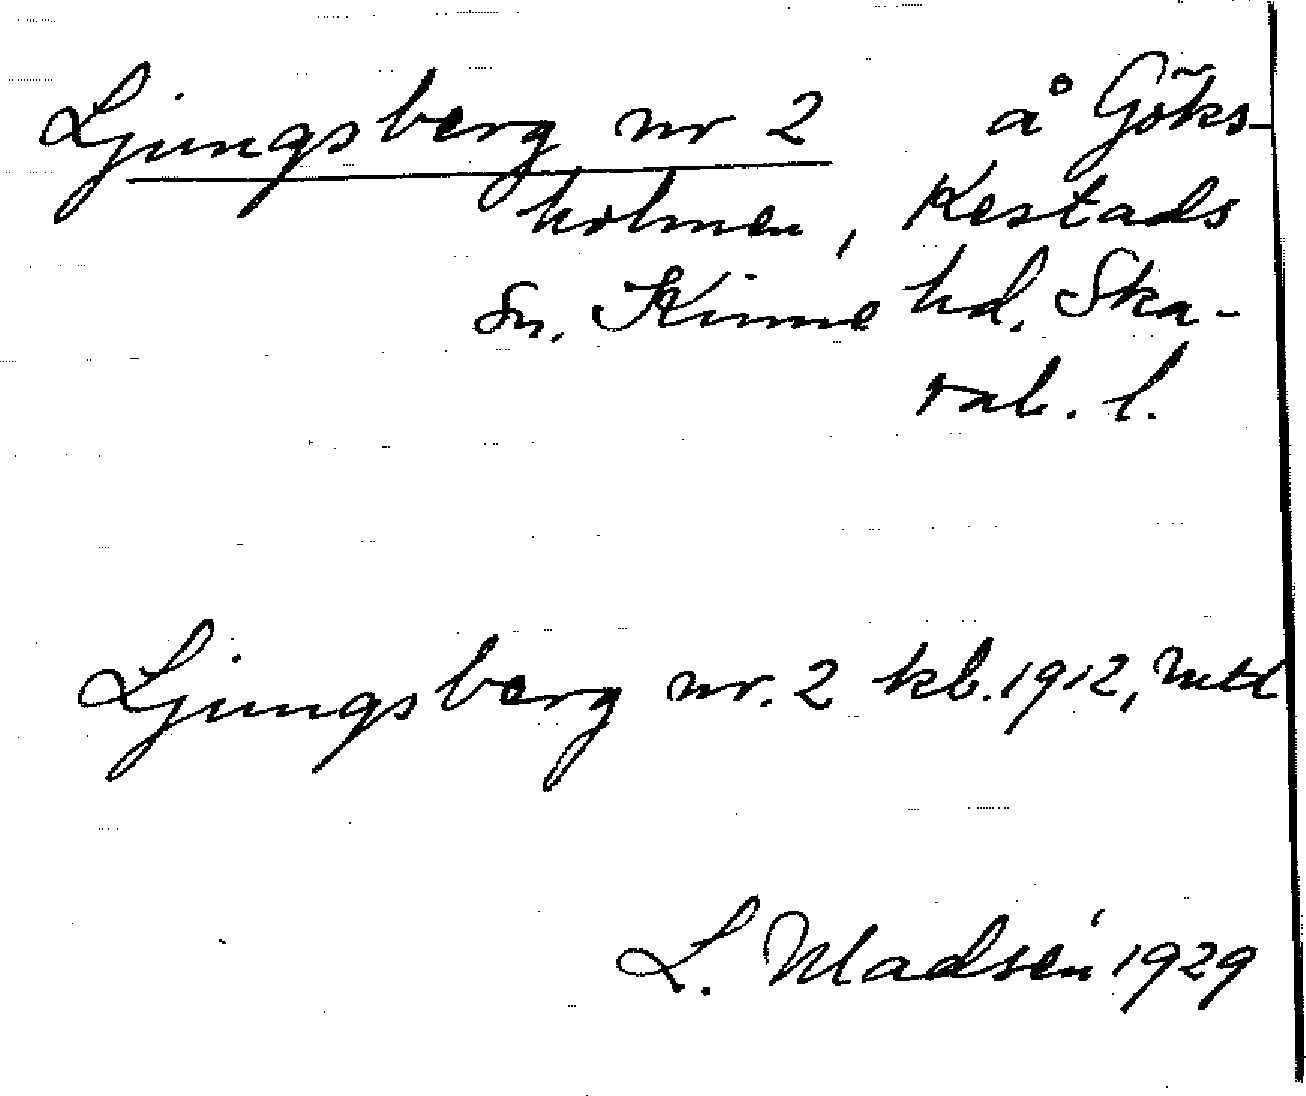 Ljungsberg nr 2 å Göks-
holmen, Kestads
sn, Kinne hd. Ska-
rab. l.
Ljungsberg nr. 2 kb. 1912, Mtl
L. Madsén 1929